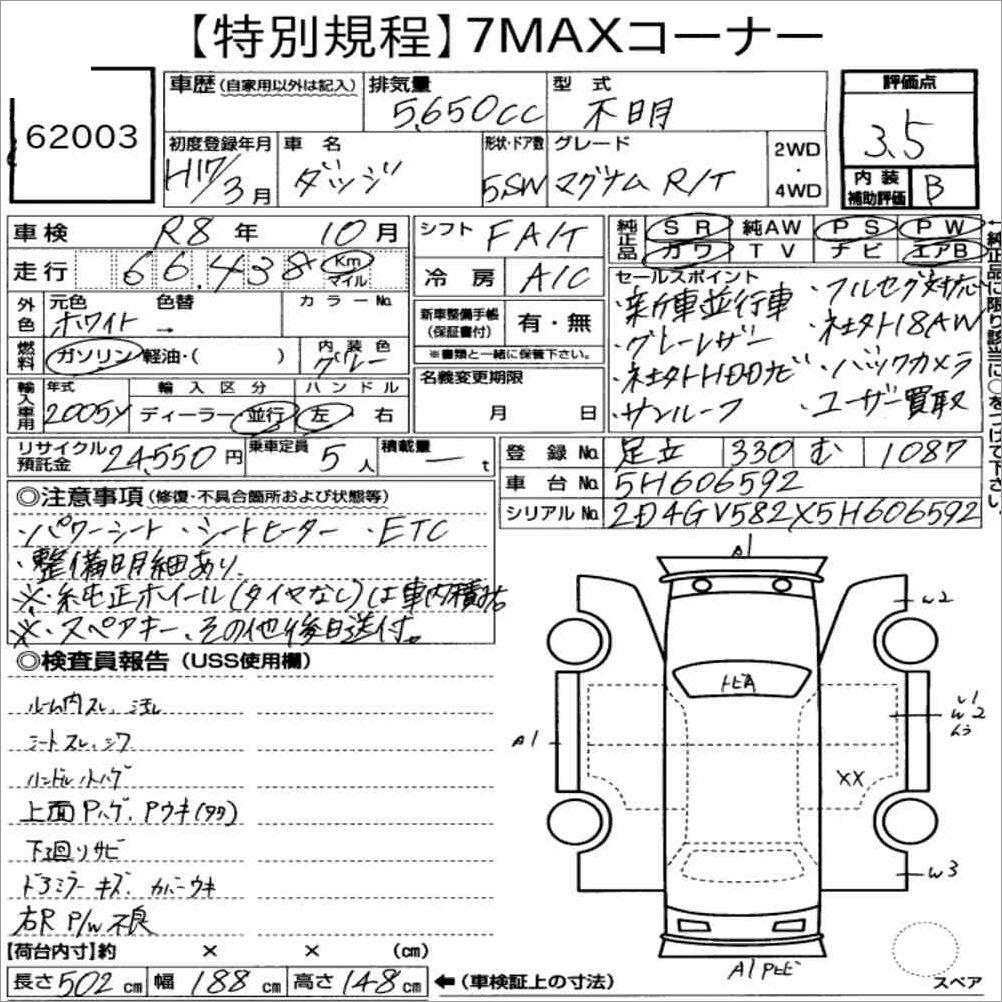 【特別規程】7MAXコーナー
62003
車歴(自家用以外は記入)
排気量
5,650cc
型式
不明
評価点
3.5
内装補助評価 B
初度登録年月
H17/3月
車名
ダッジ
形状・ドア数
5SW
グレード
マグナム R/T
2WD
・
4WD
車検 R8年 10月
走行 66,438 Km マイル
外色
元色 ホワイト
色替 →
カラーNo.
燃料 ガソリン 軽油・( )
内装色 グレー
輸入車用
年式 2005y
輸入区分 ディーラー 並行
ハンドル 左 右
リサイクル預託金 24,550円
乗車定員 5人
積載量 ー t
シフト FA/T
冷房 A/C
新車整備手帳(保証書付) 有・無
※書類と一緒に保管下さい。
名義変更期限
月 日
純正品 SR 純AW PS PW
カワ TV ナビ エアB
←純正品に限り該当に○をつけて下さい。
セールスポイント
・新車並行車 ・フルセグ対応
・グレーレザー ・社外18AW
・社外HDDナビ ・バックカメラ
・サンルーフ ・ユーザー買取
登録No. 足立 330 む 1087
車台No. 5H606592
シリアルNo. 2D4GV582X5H606592
◎注意事項(修復・不具合箇所および状態等)
・パワーシート ・シートヒーター ・ETC
・整備明細あり
※・純正ホイール(タイヤなし)は車内積込
※・スペアキー、その他後日送付。
◎検査員報告(USS使用欄)
ルーム内スレ、汚レ
シートスレ、シワ
ハンドル小ハゲ
上面Pハゲ、Pウキ(タタ)
下廻りサビ
ドアミラーキズ、カバーウキ
右R P/W不良
【荷台内寸】約 × × (cm)
長さ502cm 幅188cm 高さ148cm ←(車検証上の寸法)
A1
W2
トビA
A1
W2
XX
W3
A1 Pトビ
スペア